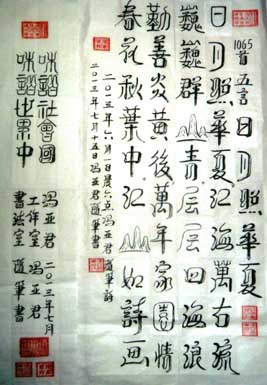 1065首五言日月照華夏
日月照華夏江海萬古流
巍巍群山青层层四海浪
勤善炎黃後萬年家園情
春花秋葉中江山如詩画
二〇一三年六月一日晨六点冯亚君随笔詩
二〇一三年七月十五日冯亚君随笔書
味諧社會國
味諧世界中
冯亚君二〇一三年七月
工作室 冯亚君
書法室 随筆書